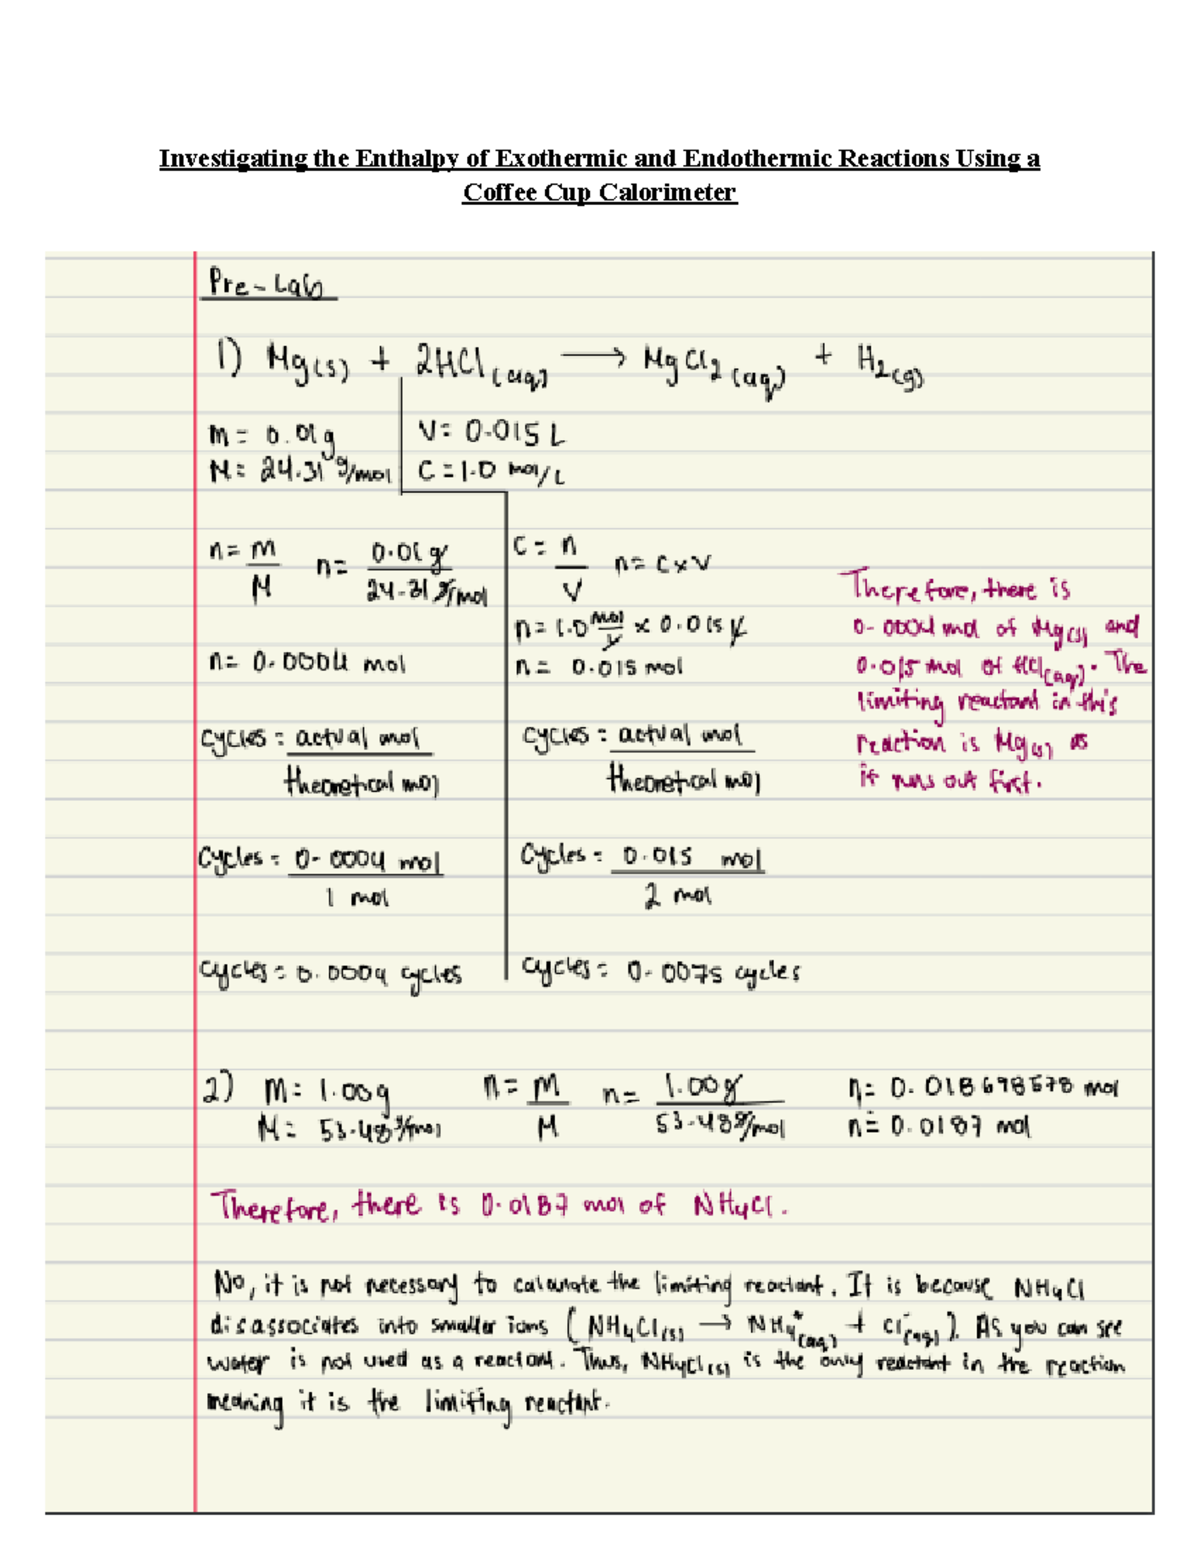 Investigating the Enthalpy of Exothermic and Endothermic Reactions Using a
Coffee Cup Calorimeter
Pre-Lab
1) Mg(s) + 2HCl(aq) → MgCl2(aq) + H2(g)
m = 0.01g
M = 24.31 g/mol
V = 0.015 L
C = 1.0 mol/L
n = m/M n = 0.01g/24.31 g/mol
n = 0.0004 mol
cycles = actual mol/theoretical mol
cycles = 0.0004 mol/1 mol
cycles = 0.0004 cycles
C = n/V n = C x V
n = 1.0 mol/L x 0.015 L
n = 0.015 mol
cycles = actual mol/theoretical mol
cycles = 0.015 mol/2 mol
cycles = 0.0075 cycles
Therefore, there is
0.0004 mol of Mg(s) and
0.015 mol of HCl(aq). The
limiting reactant in this
reaction is Mg(s) as
it runs out first.
2) m = 1.00g n = m/M n = 1.00g/53.48g/mol n = 0.018698578 mol
M = 53.48g/mol n = 0.0187 mol
Therefore, there is 0.0187 mol of NH4Cl.
No, it is not necessary to calculate the limiting reactant. It is because NH4Cl
disassociates into smaller ions (NH4Cl(s) → NH4+(aq) + Cl-(aq)). As you can see
water is not used as a reactant. Thus, NH4Cl(s) is the only reactant in the reaction
meaning it is the limiting reactant.